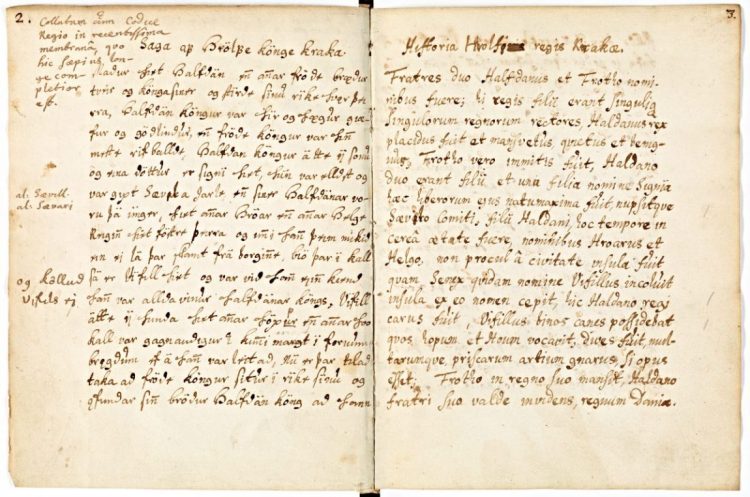 2.
Collatum cum Codice
Regio in recentissima
membranâ, quo
hic sæpius, lon-
ge com-
pletior
est.
Saga af Hrölfe könge kraka
madur hiet Halfdän en añar fröde brædur
tveir og köngasyner og stirde sinu rike hvor þei-
rra, Halfdän köngur var hir og hægur gæ-
fur og gödlindur, en fröde köngur var hiñ
meste rifballde, Halfdän köngur ätte ij sonu
og eina döttur, er signi hiet, hün var elldst og
var gipt Sævila Jarle en siner Halfdänar vo-
ru þä unger, hiet añar Hröar en añar Helge
Regiñ hiet föstre þeirra og uñi hañ þeim mikid
ein ei lä þar skamt frä borgiñe, bio þar i kall
sä er Vifill hiet og var vid hañ eiin kend
hañ var allda vinur Halfdänar köngs, Vifill
ätte ij hunda hiet añar höpur en añar hoo
kall var gagnaudigur &amp; kuñi margt i foruum
brögdum ef ä hañ var leitad, Nu er þar til ad
taka ad fröde köngur situr i rike sinu og
öfundar siñ brödur Halfdän köng ad hann
al. Sævill.
al. Sævari
og kallud
Vifels ej
3.
Historia Hrolfi regis Krakæ.
Fratres duo Halfdanus et Frotho nomi-
nibus fuere; hi regis filii erant singuliq
singulorum regnorum rectores, Haldanus rex
placidus fuit et mansvetus, qvietus et benig-
nus; Frotho vero immitis fuit, Haldano
duo erant filii et una filia nomine Signia
hæc liberorum ejus natu maxima fuit, nupsitqve
Sævilo Comiti, filii Haldani, hoc tempore in
cereâ ætate fuere, nominibus Hroarus et
Helgo, non procul â civitate insula fuit
quam Senex quidam nomine Vifillus incoluit
insula ex eo nomen cepit, hic Haldano regi
carus fuit, Vifillus binos canes possidebat
quos hopum et Houm vocavit, dives fuit, mul-
tarumque priscarum artium gnarus si opus
esset; Frotho in regno suo mansit, Haldano
fratri suo valde invidens, regnum Daniæ.